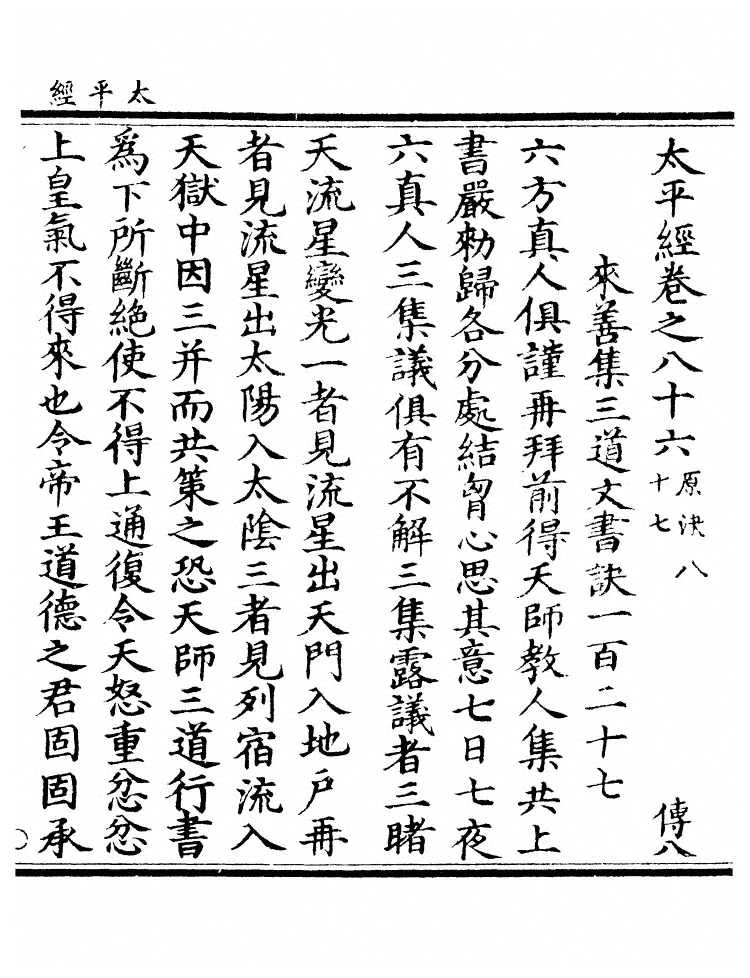 太平經
太平經卷之八十六 原缺八十七 傳八
來善集三道文書訣一百二十七
六方真人俱謹再拜前得天師教人集共上
書嚴勑歸各分處結胷心思其意七日七夜
六真人三集議俱有不解三集露議者三睹
天流星變光一者見流星出天門入地戶再
者見流星出太陽入太陰三者見列宿流入
天獄中因三并而共策之恐天師三道行書
爲下所斷絶使不得上通復令天怒重忿忿
上皇氣不得來也令帝王道德之君固固承